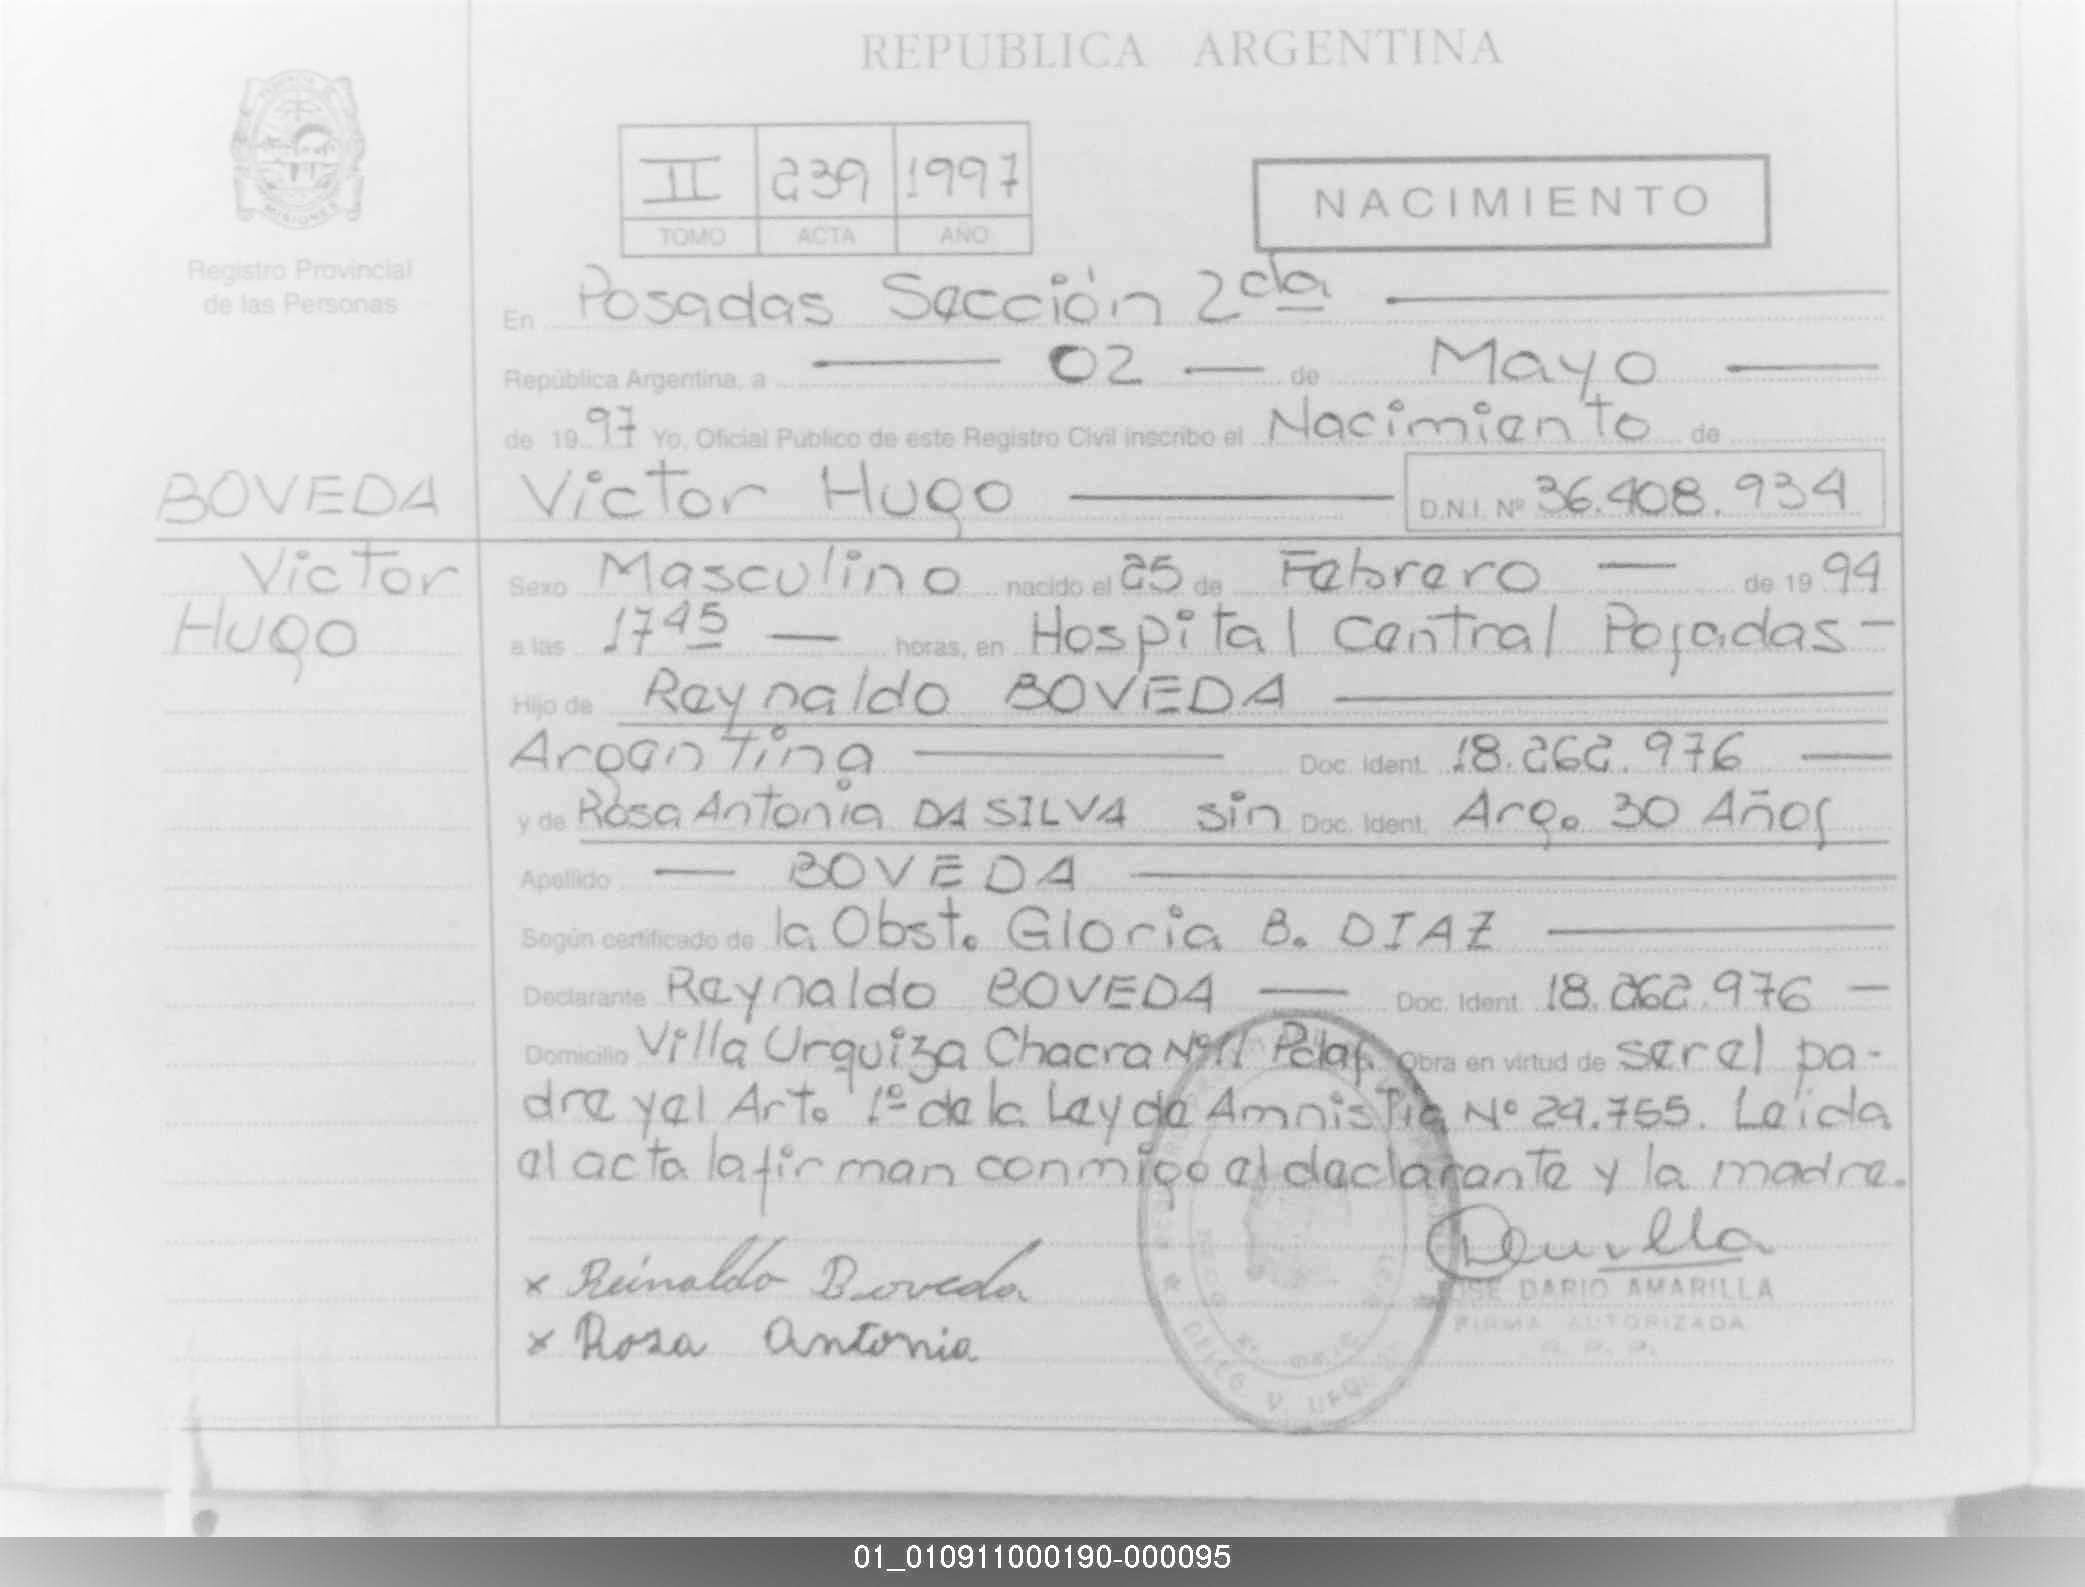 REPUBLICA ARGENTINA
PROVINCIA DE
MISIONES
Registro Provincial
de las Personas
II 239 1997
TOMO ACTA AÑO
NACIMIENTO
En Posadas Sección 2cda
República Argentina, a 02 de Mayo
de 1997 Yo, Oficial Público de este Registro Civil inscribo el Nacimiento de
BOVEDA
Victor
Hugo
Victor Hugo D.N.I. Nº 36.408.934
Sexo Masculino nacido el 25 de Febrero de 1994
a las 1745 horas, en Hospital Central Posadas-
Hijo de Reynaldo BOVEDA
Argentina Doc. Ident. 18.262.976
y de Rosa Antonia DA SILVA sin Doc. Ident. Arg. 30 Años
Apellido BOVEDA
Según certificado de la Obst. Gloria B. DIAZ
Declarante Reynaldo BOVEDA Doc. Ident 18.262.976
Domicilio Villa Urquiza Chacra Nº11 Pdas. Obra en virtud de ser el pa-
dre y el Art. 1º de la Ley de Amnistia Nº 24.755. Leida
el acta la firman conmigo el declarante y la madre.
x Reinaldo Boveda
x Rosa Antonia
JOSE DARIO AMARILLA
FIRMA AUTORIZADA
R. P. P.
DELEG. V. URQUIZA
01_010911000190-000095